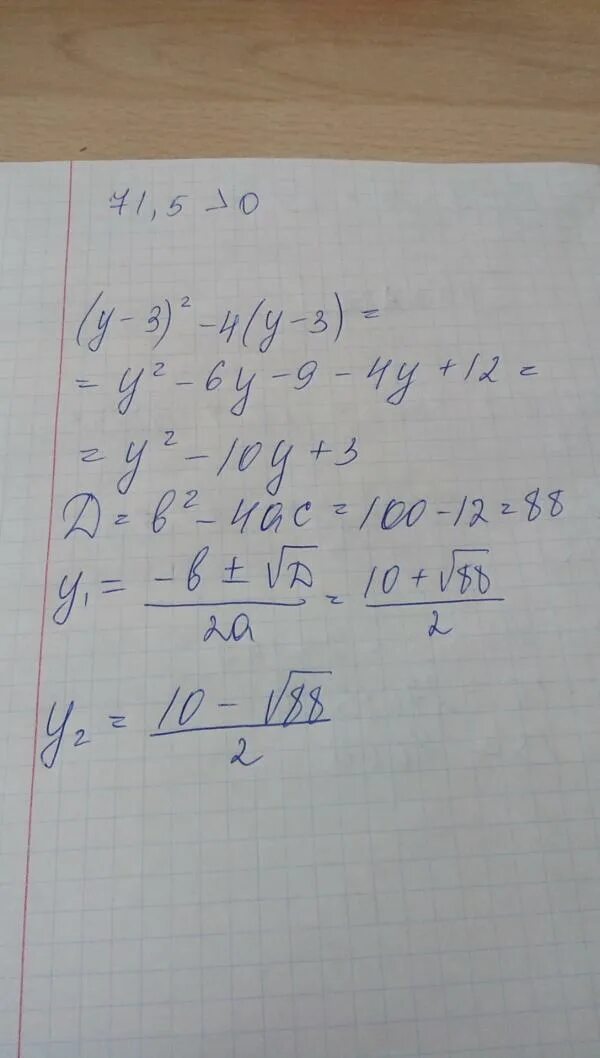 71,5 > 0
(y - 3)² - 4(y - 3) =
= y² - 6y - 9 - 4y + 12 =
= y² - 10y + 3
D = b² - 4ac = 100 - 12 = 88
y₁ = (-b ± √D)/2a = (10 + √88)/2
y₂ = (10 - √88)/2